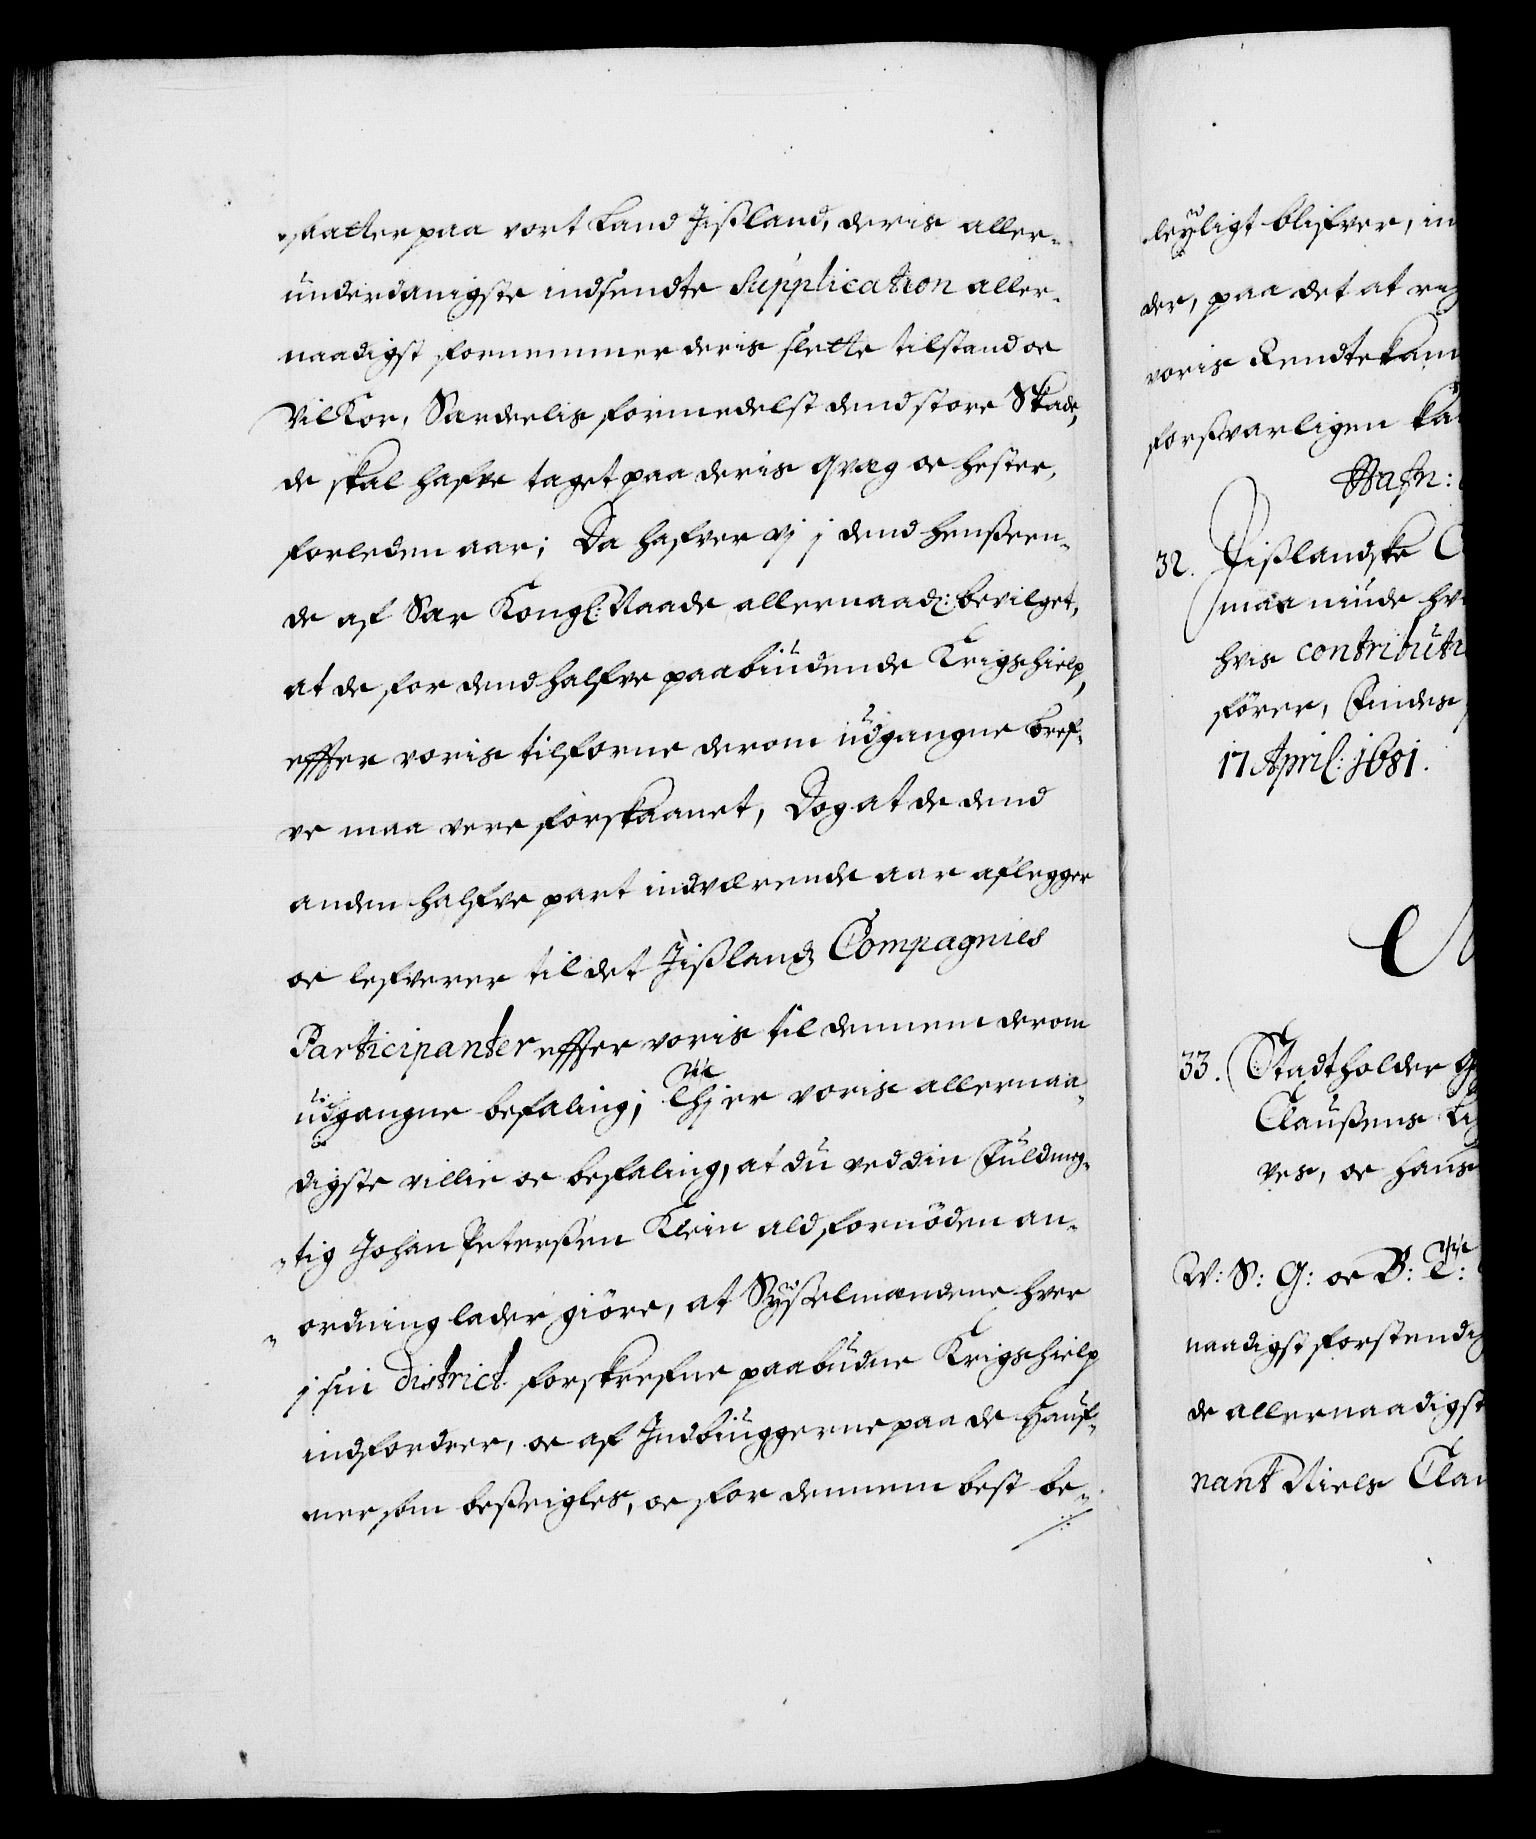 saatter paa vort Land Jißland, deris aller-
underdanigste indsendte Supplication aller-
naadigst fornemmer deris slette tilstand oc
Vilkor, Særdeelis formedelst dend store Skade,
de skal hafve taget paa deris qvæg oc hester,
forleden aar; Da hafver vj j dend henßeen-
de af Sær Kongl: Naade allernaad: bevilget,
at de for dend halfve paabiudende Krigshielp,
effter voris tilforne derom udgangne bref-
ve maa vere forskaanet, Dog at de dend
anden halfve part indværende aar aflegger
oc lefverer til det Jißlandz Compagnies
Participanter effter voris til dennem derom
udgangne befaling; Thj er voris allernaa-
digste villie oc befaling, at du ved din Fuldmeg-
tig Johan Peterßen Klein ald fornöden an-
ordning lader giöre, at Sysselmændene hver
j sin District forskrefne paabudne Krigshielp
indfordrer, oc af Indbiuggerne paa de Hauf-
ner som beßeigles, oc for dennem best be-
leyligt blifver, in
der, paa det at
voris Rendtekam
forsvarligen ka
Hafn:
32. Jißlandske C
maa niude
hvis contributi
förer, Findes
17 April: 1681.
33. Stadtholder
Claußens
ves, oc hans
W: S: G: oc B: T:
naadigst forstendig
de allernaadigst
nant Niels Clau